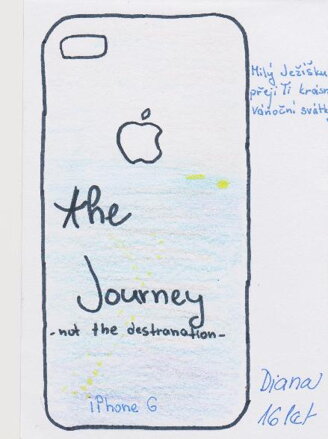 Milý Ježíšku
přeji Ti krásn
vánoční svátk
the
Journey
-not the destranation-
iPhone 6
Diana
16 let